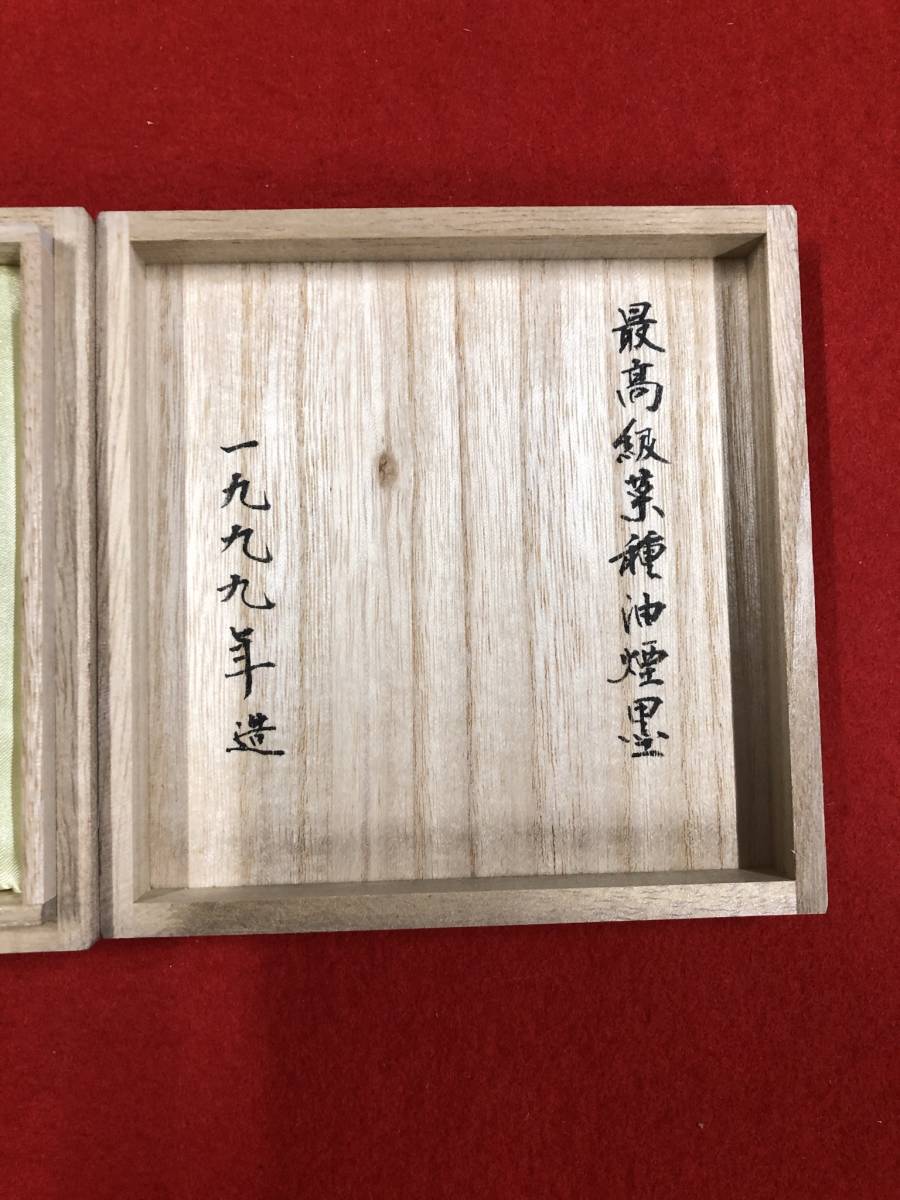 最高級菜種油煙墨
一九九九年造